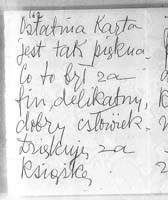 Ostatnia Karta
jest tak piękna.
Co to był za
fin, delikatny,
dobry człowiek.
Dziękuję za
książkę